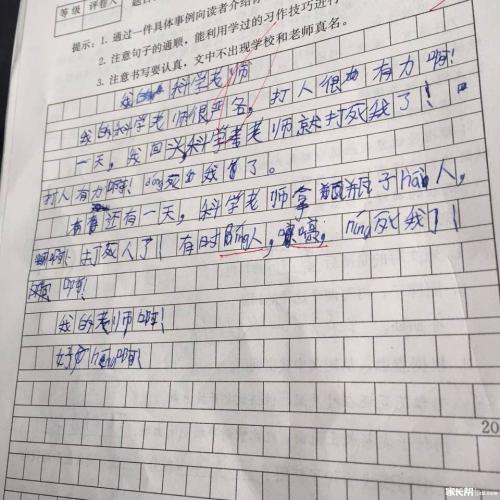 等级 评卷人
提示：1. 通过一件具体事例向读者介绍
2. 注意句子的通顺，能利用学过的习作技巧进行
3. 注意书写要认真，文中不出现学校和老师真名。
我的科学老师
我的科学老师很严名，打人很有力啊！
一天，我回头，科学老师就打死我了！
打人有力啊！死我了。
还有一天，科学老师拿瓶子hǎi人，
打死人了！有时bing人，嘻嘻，nīng死我了！
啊！
我的老师啊！
好hěng啊！
20
家长帮